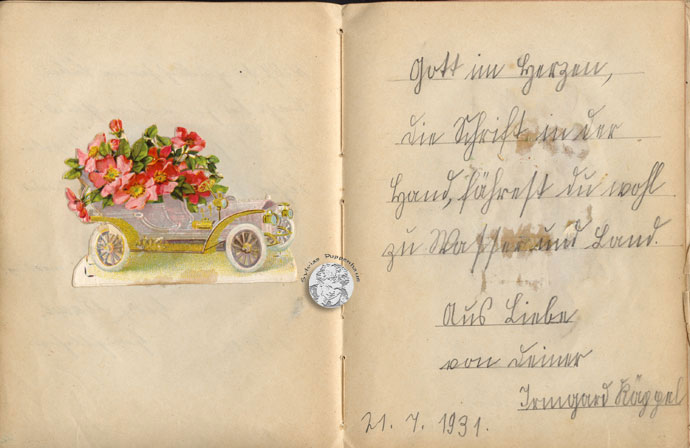 Gott im Herzen,
die Schrift in der
Hand, fährest du wohl
zu Wasser und Land.
Aus Liebe
von deiner
Irmgard Käppel
21. 7. 1931.
Sylvias Puppenheim